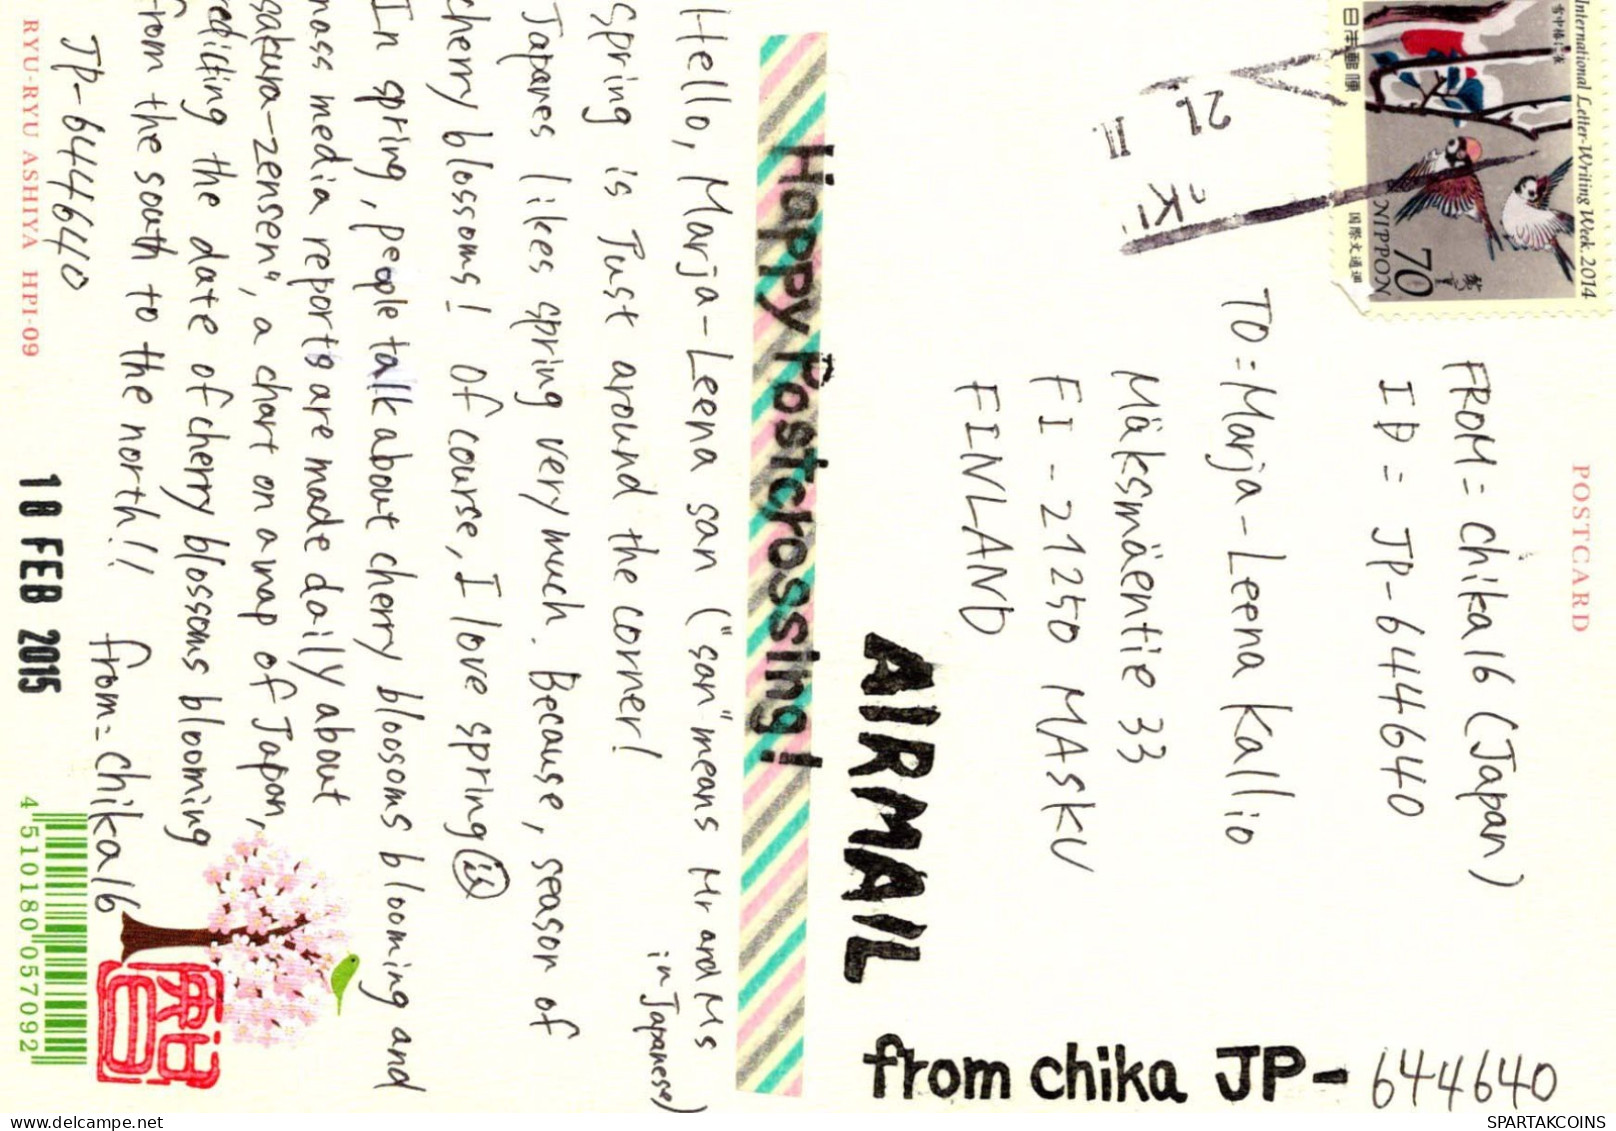 POSTCARD
International Letter-Writing Week. 2014
雪中椿に雀
日本郵便
NIPPON
70
国際文通週間
21. II
OKI
FROM= chika16 (Japan)
ID = JP-644640
TO= Marja-Leena Kallio
Mäksmäentie 33
FI-21250 MASKU
FINLAND
AIRMAIL
from chika JP-644640
Happy Postcrossing!
Hello, Marja-Leena san ("san" means Mr and Ms
in Japanese)
spring is Just around the corner!
Japanes likes spring very much. Because, season of
cherry blossoms! Of course, I love spring
In spring, people talk about cherry bloosoms blooming and
mass media reports are made daily about
"sakura-zensen", a chart on a map of Japan,
redicting the date of cherry blossoms blooming
from the south to the north!!
from= chika16
JP-644640
RYU-RYU ASHIYA HPI-09
18 FEB 2015
4 510180 057092
SPARTAKCOINS